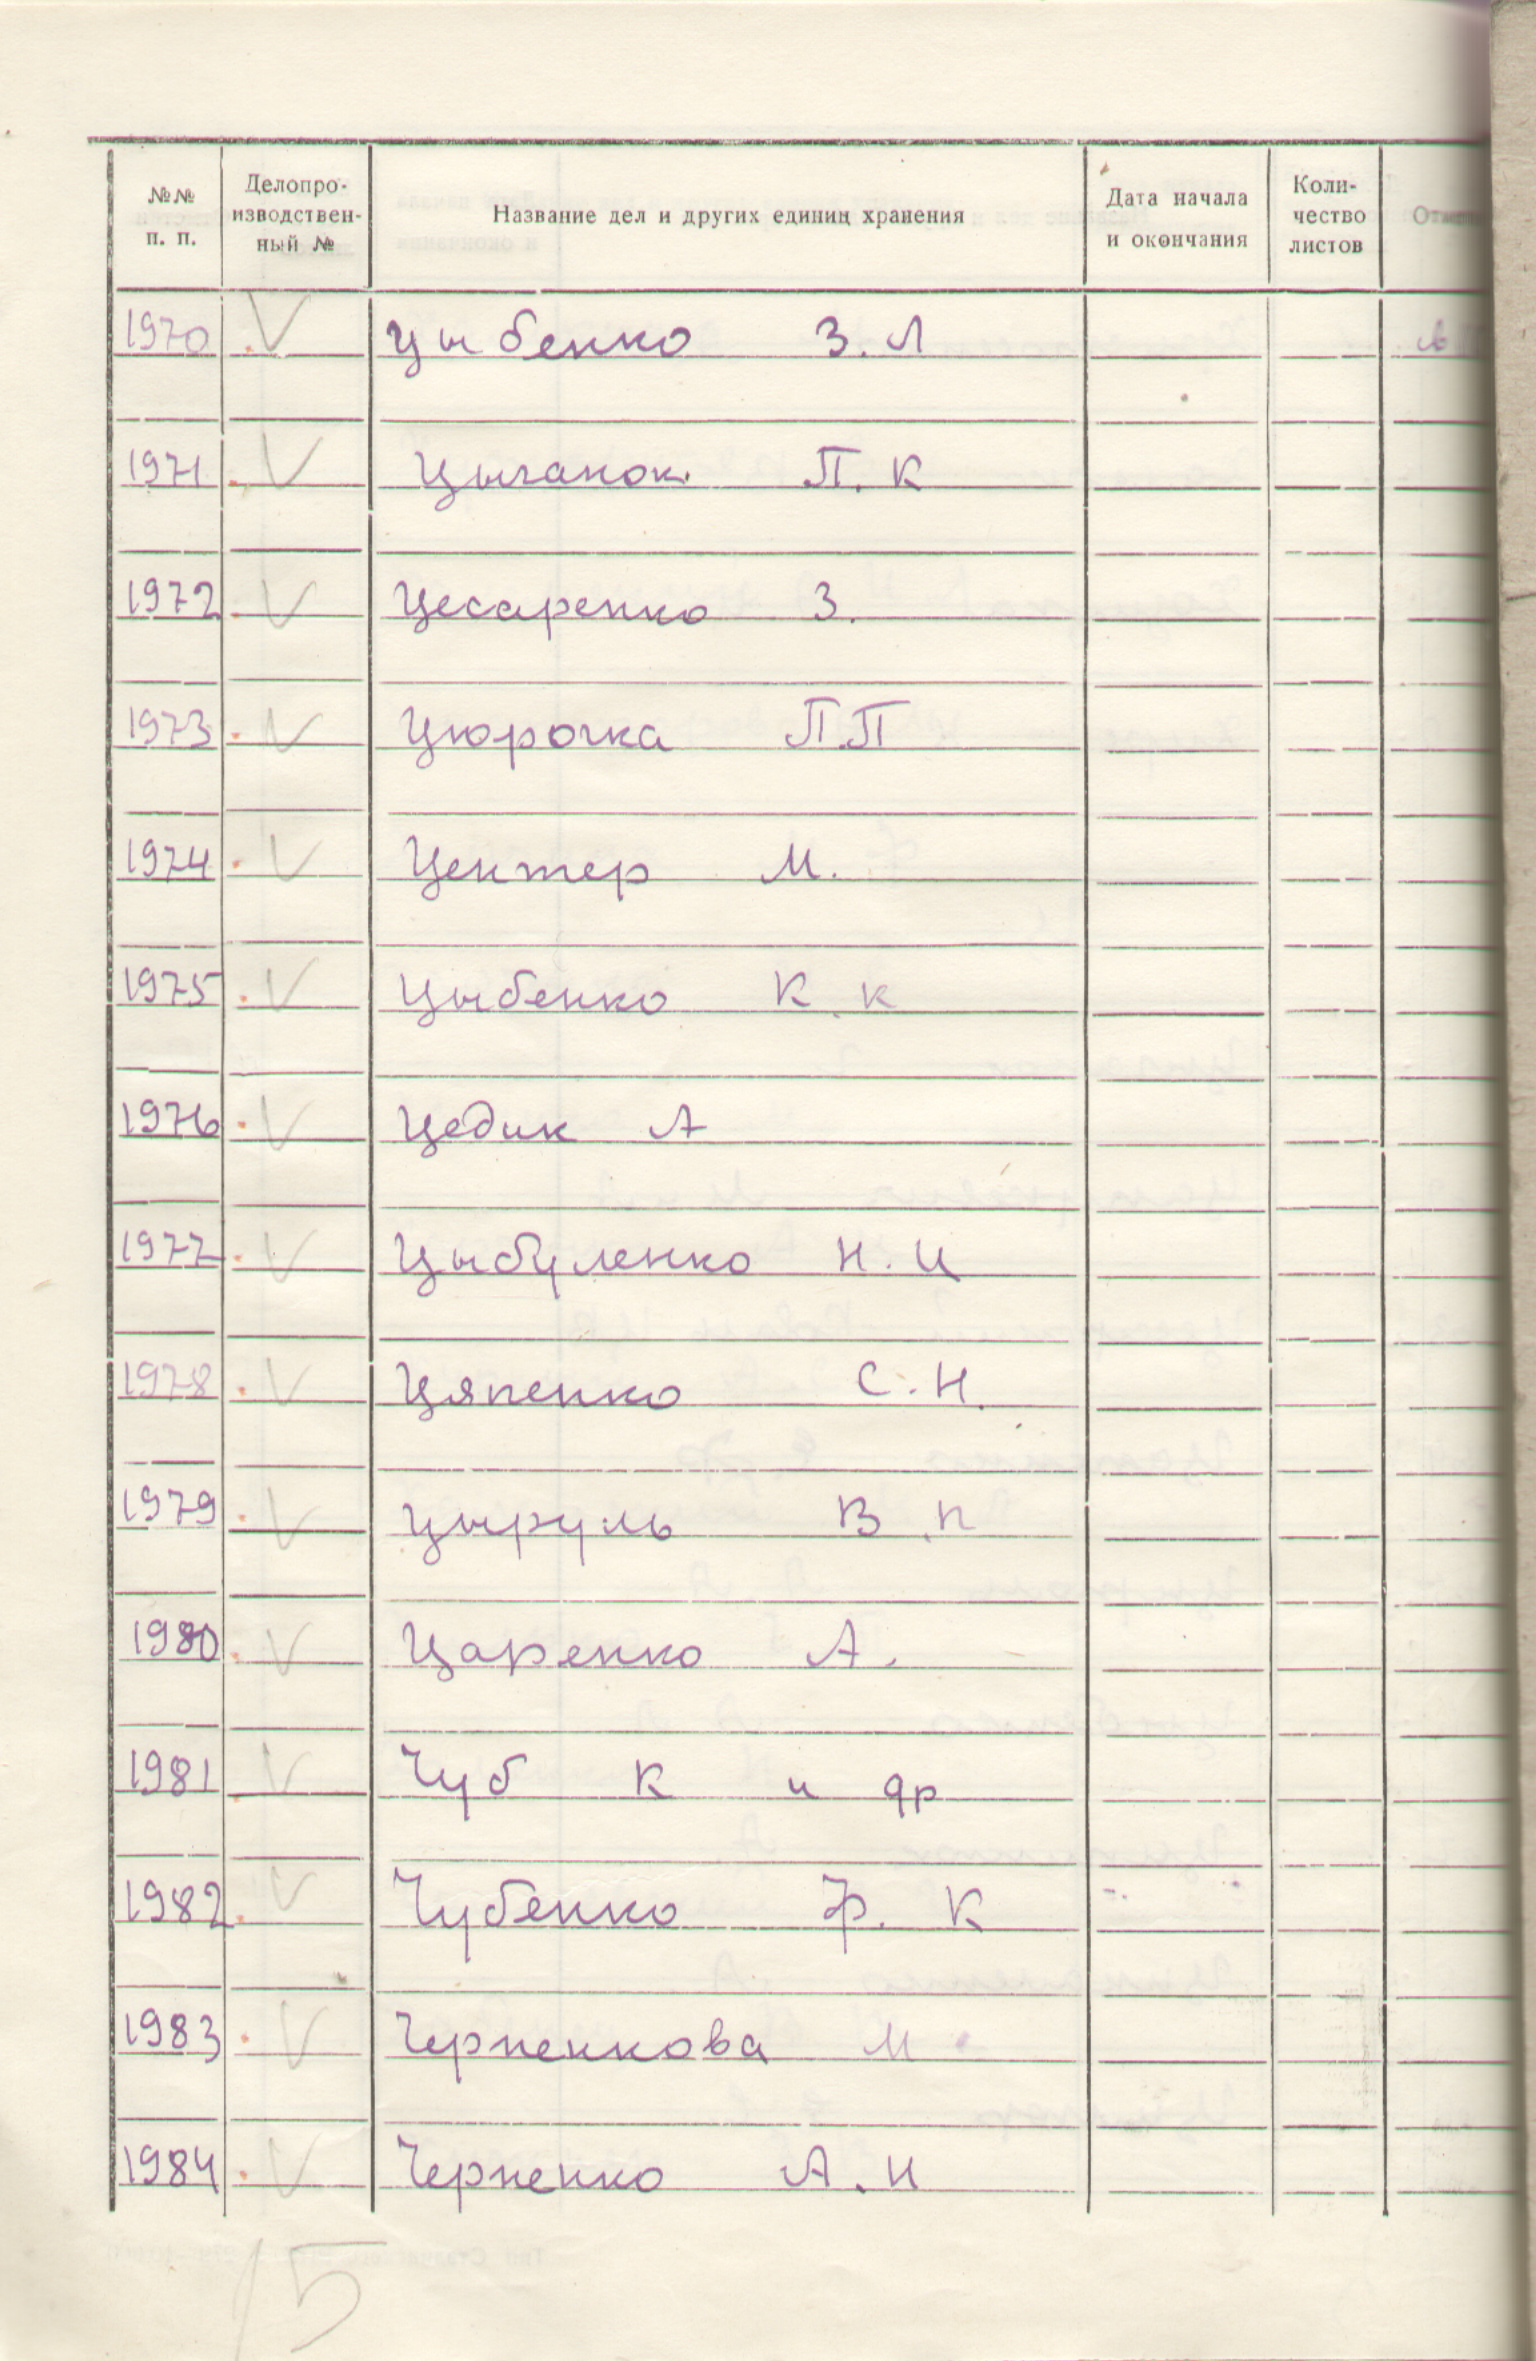 №№ п. п. Делопроизводствен-ный № Название дел и других единиц хранения Дата начала и окончания Коли-чество листов
1970 V Цыбенко З. Л
1971 V Цыганок П. К
1972 V Цесаренко З.
1973 V Цюрочка П.П
1974 V Центер М.
1975 V Цыбенко К. К
1976 V Цедик А
1977 V Цыбуленко Н. И
1978 V Цяпенко С. Н.
1979 V Цыруль В. П
1980 V Царенко А.
1981 V Чуб К и др
1982 V Чубенко Ф. К
1983 V Черненкова М.
1984 V Черненко А. И
15